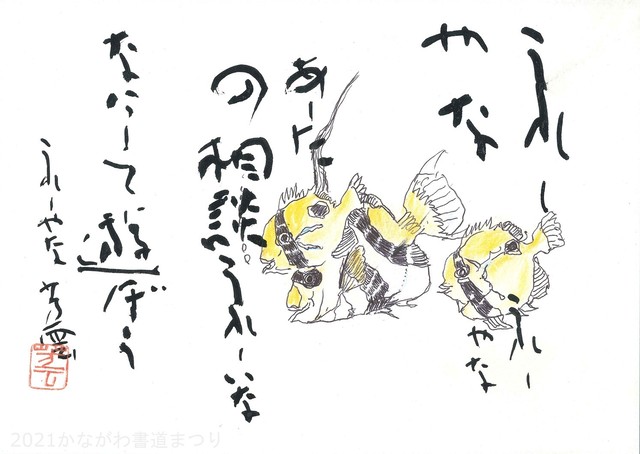 うれしー
やな
うれー
やな
あしたー
の相談うれーいな
なにして遊ぼう
うれーやな
2021かながわ書道まつり